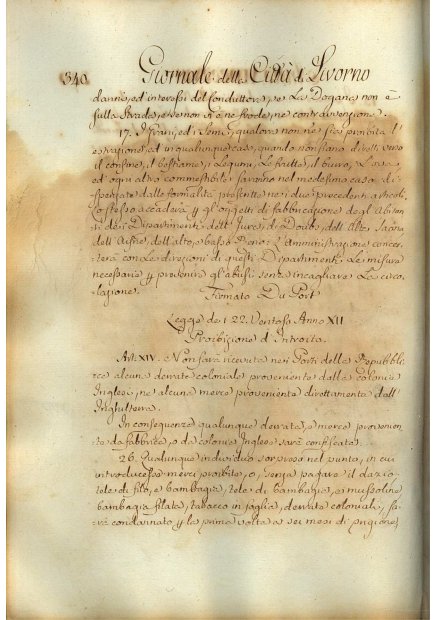 340 Giornale della Città di Livorno
danni, ed interessi del conduttore, se La Dogana non è
sulla Strada, e se non vi è ne frode, ne contravvenzione.
17. I grani, ed i semi, qualora non ne sia proibita l'
estrazione, ed in qualunque caso, quando non siano diretti verso
il confine, il bestiame, i Legumi, Le frutta, il burro, L'uova,
ed ogni altro commestibile saranno nel medesimo caso di-
spensate dalle formalità prescritte nei due precedenti articoli.
Lo stesso accaderà p gl'oggetti di fabbricazione degl'Abitan-
ti dei Dipartimenti dell'Jura, di Doubs, dell'Alta Saona
dell'Aisne, dell'alto, e basso Reno: L'Amministrazione concer-
terà con Le direzioni di questi Dipartimenti Le misure
necessarie p prevenire gl'abusi senza incagliare La circo-
lazione. Firmato Du Port
Legge de' 22. Ventoso Anno XII
Proibizione d'Introito.
Art: XIV. Non sarà ricevuta nei Porti della Repubbli-
ca alcuna derrata coloniale proveniente dalle colonie
Inglesi, ne alcuna merce proveniente direttamente dall'
Inghilterra.
In conseguenza qualunque derrata, e merce provenien-
te da fabbrica, o da colonia Inglese sarà confiscata.
26. Qualunque individuo sorpreso nel punto, in cui
introducesse merci proibite, o, senza pagare il dazio
tele di filo, e bambagia, tele di bambagia, e mussoline
bambagia filata, tabacco in foglia, derrate coloniali, sa-
rà condannato p la prima volta a sei mesi di prigione,